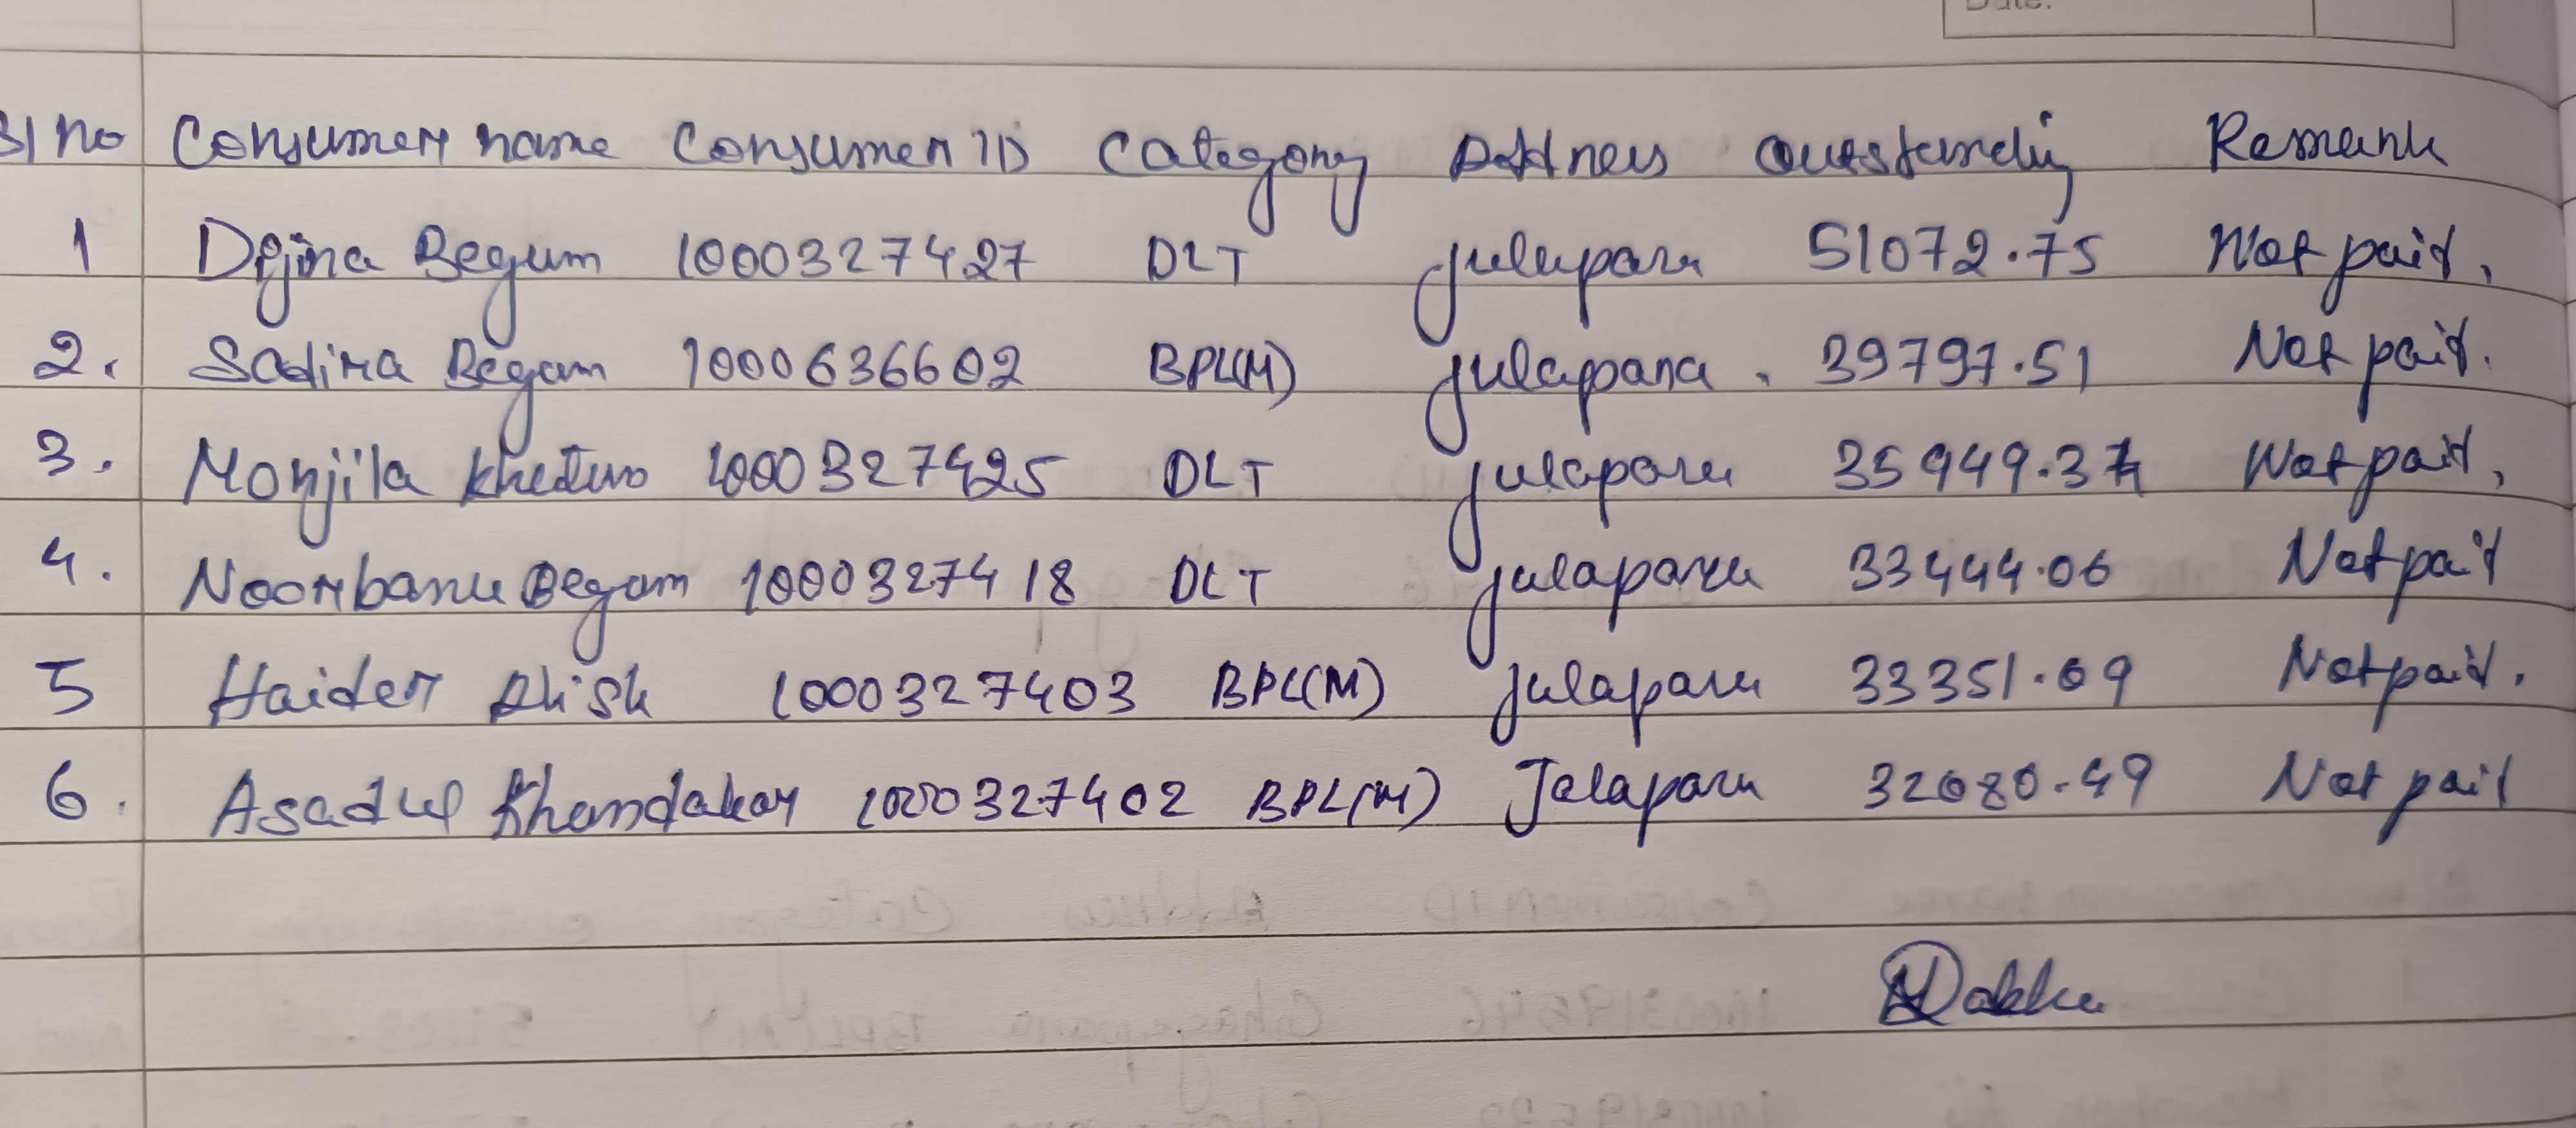 Sl no Consumer name Consumer ID Category Address Outstanding Remark
1 Dijina Begum 1000327427 DLT julapara 51072.75 Not paid.
2. Sadira Begam 1000636602 BPL(M) julapara. 39797.51 Not paid.
3. Monjila Khatun 1000327425 DLT julapara 35949.37 Not paid.
4. Noorbanu Begam 1000327418 DLT julapara 33444.06 Not paid
5 Haider Ali Sk 1000327403 BPL(M) julapara 33351.09 Not paid.
6. Asadul Khandakar 1000327402 BPL(M) Jalapara 32080.49 Not paid